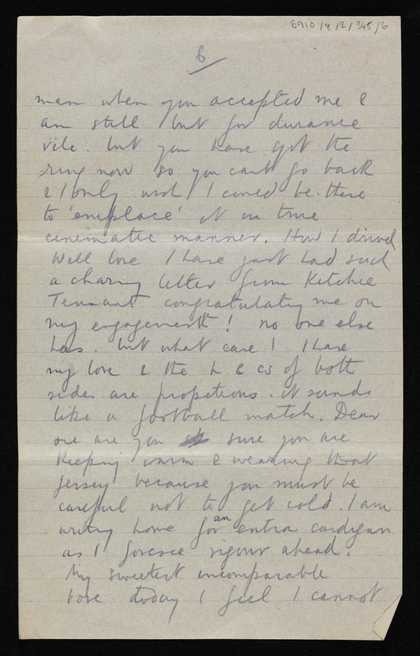 6910/4/2/345/6
6
man when you accepted me &
am still but for durance
vile. But you have got the
ring now so you cant go back
& I only wish I could be there
to 'emplace' it in true
cinematic manner. How I
Well love I have just had such
a charing letter from Kitchie
Tennant congratulating me on
my engagement! no one else
has. but what care I I have
my love & the of both
sides are propetions. it sounds
like a football match. Dear
one are you sure you are
keeping warm & wearing that
jersey because you must be
careful not to get cold. I am
writing home for an extra cardigan
as I foresee rigour ahead.
My sweetest incomparable
love today I feel I cannot